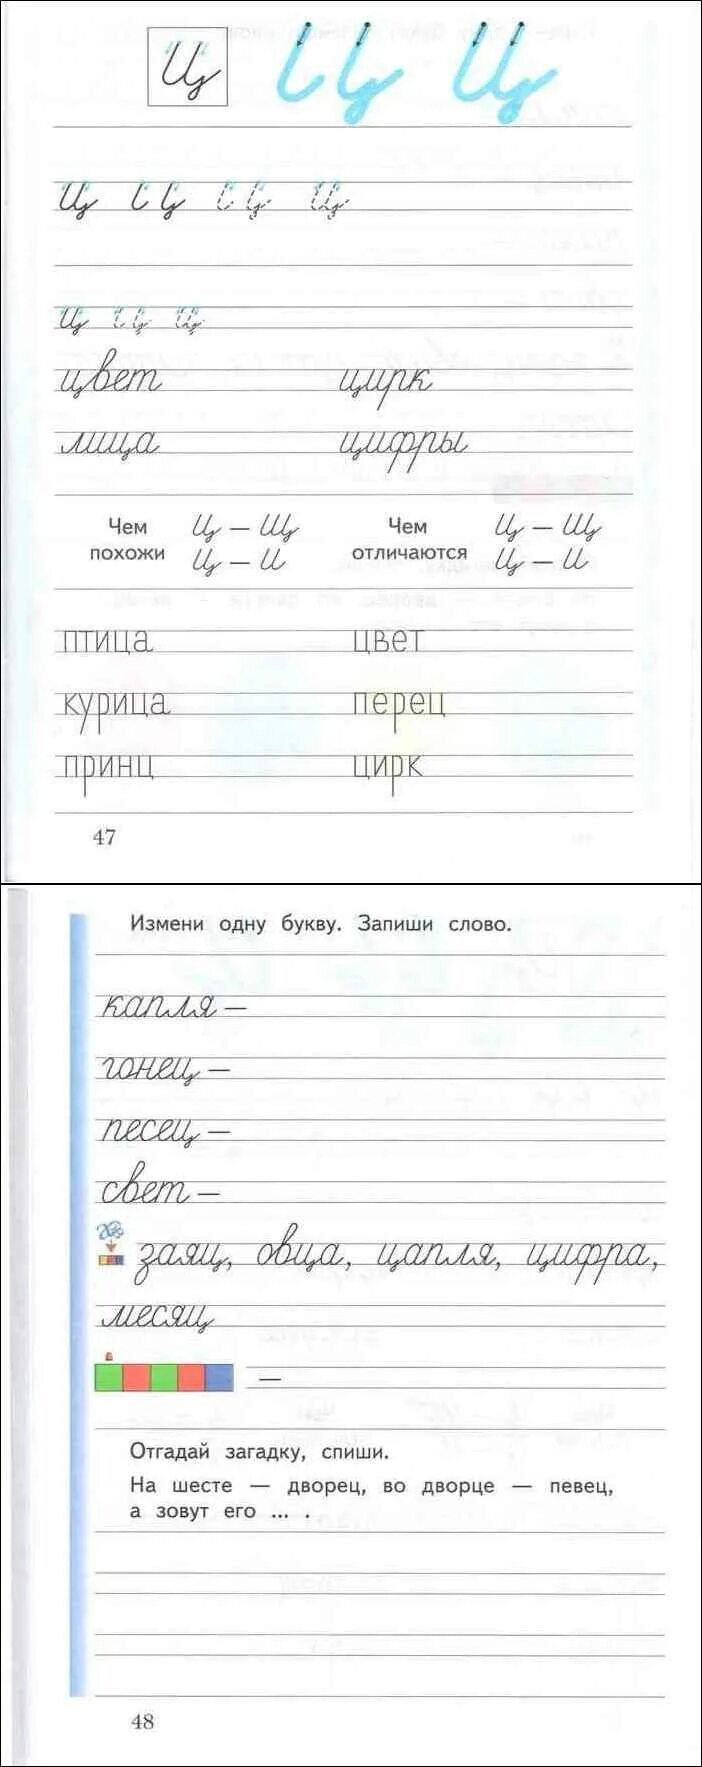 Ц Ц Ц
Ц Ц Ц Ц
ц ц ц
цвет цирк
лица цифры
Чем похожи Ц — Щ Ц — И Чем отличаются Ц — Щ Ц — И
птица цвет
курица перец
принц цирк
47
Измени одну букву. Запиши слово.
капля —
гонец —
песец —
свет —
заяц, овца, цапля, цифра,
месяц
—
Отгадай загадку, спиши.
На шесте — дворец, во дворце — певец,
а зовут его ... .
48